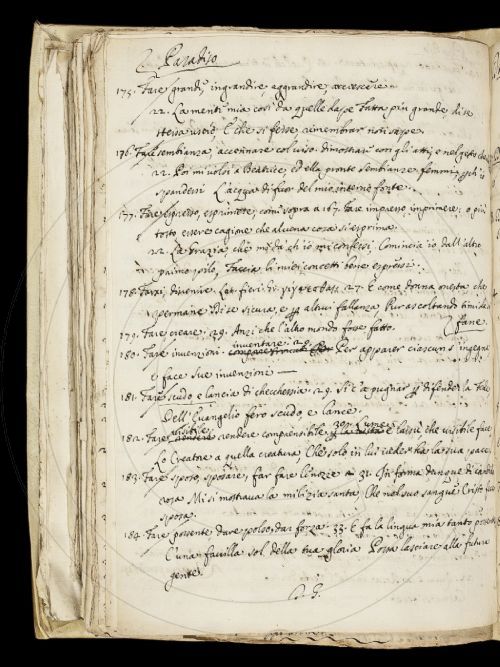 Paradiso.
175. Fare grandi, ingrandire, aggrandire, accrescere.
22. La mente mia così da quelle dape Fatta più grande di se
stessa uscio, E che si fesse, remembrar non sape.
176. Fare sembianza, accennare col viso. dimostrar con gli atti, e nel gesto che
22. Poi mi volsi a Beatrice, ed ella pronte Sembianze femmi per ch' io
spandessi L'acqua di fuor del mio interno fonte.
177. Fare espresso, esprimere, come sopra a 167. Fare impresso imprimere; o più
tosto essere cagione che alcuna cosa si esprima.
22. La Grazia, che mi dà ch' io mi confessi. Comincia io dall' altro
primo pilo, Faccia li miei concetti bene espressi.
178. Farsi, divenire. Lat. fieri. 27. E come donna onesta che
permane Di se sicura, e per altrui fallanza Pur ascoltando timida
si fane.
179. Fare creare. 29. Anzi che l'altro mondo fosse fatto.
180. Fare invenzioni inventare. 29. Per apparer ciascun s' ingegna
e face Sue invenzioni
181. Fare scudo, e lancia di checchessia. 29. Sì ch' a pugnar per difender la Fede
Dell' Evangelio fero scudo, e lance.
182. Fare visibile, rendere comprensibile. 30. Lume è lassù che visibile face
Lo Creatore a quella creatura Che solo in lui vedere ha la sua pace
183. Fare sposo, sposare, far fare le nozze 31. In forma dunque di candida
rosa Mi si mostrava la milizia santa, Che nel suo sangue Cristo fece
sposa.
184. Fare possente, dare possa, dar forza. 33. E fa la lingua mia tanto possente
Ch' una favilla sol della tua gloria Possa lasciare alla futura
gente.